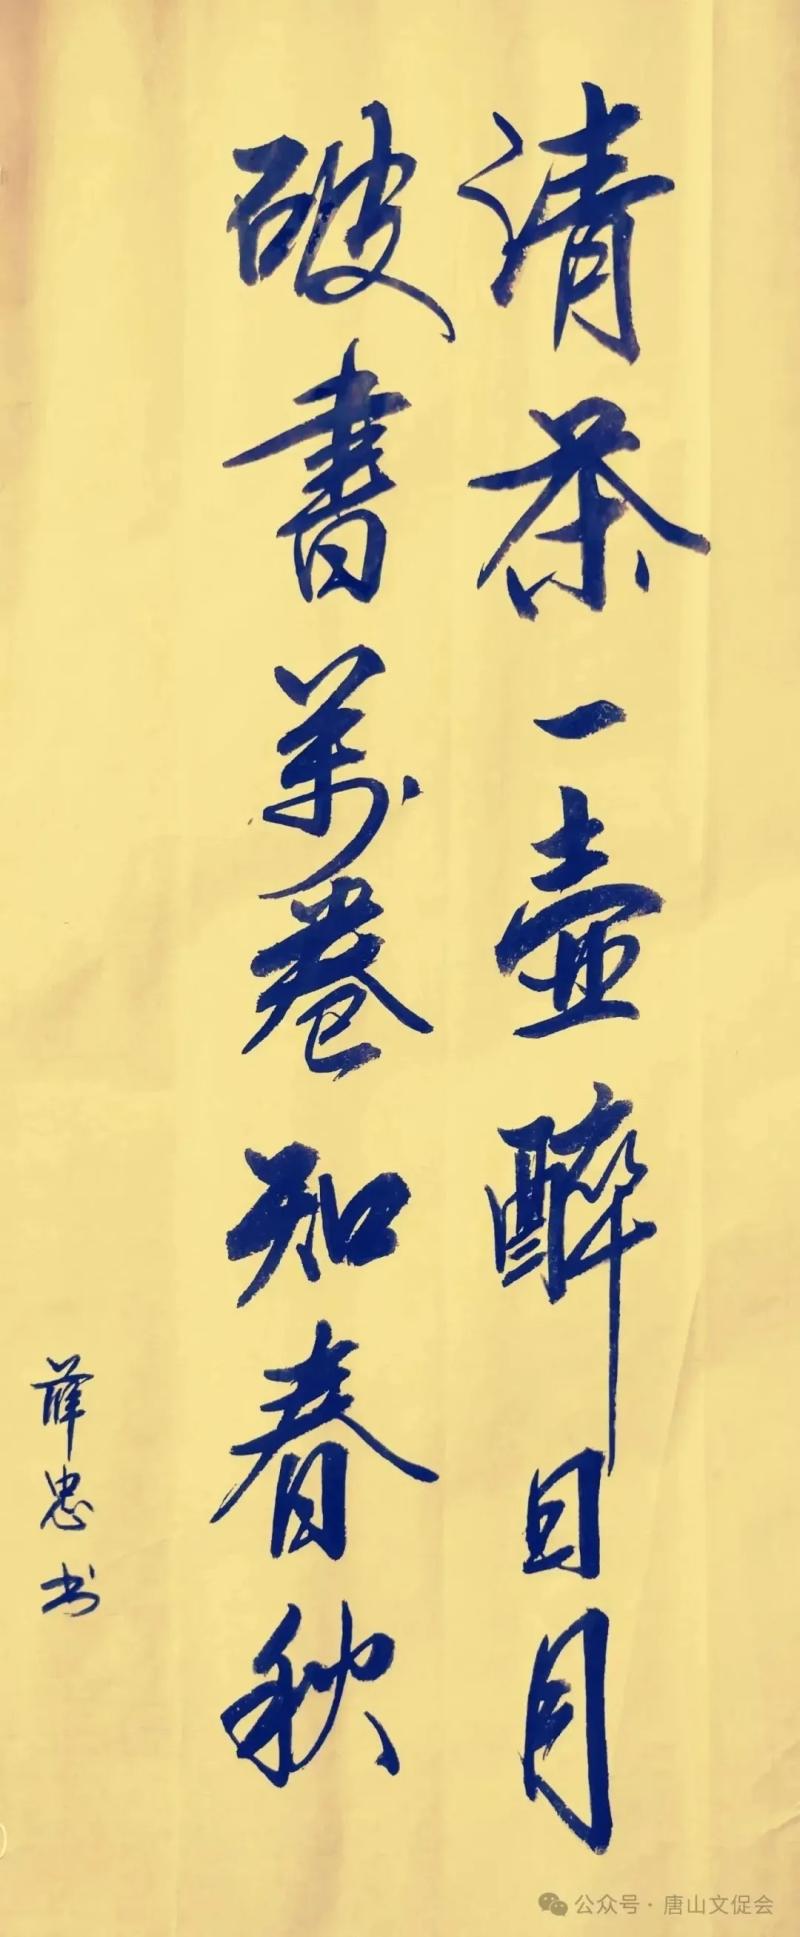 清茶一壶醉日月
破書萬卷知春秋
薛忠书
公众号·唐山文促会